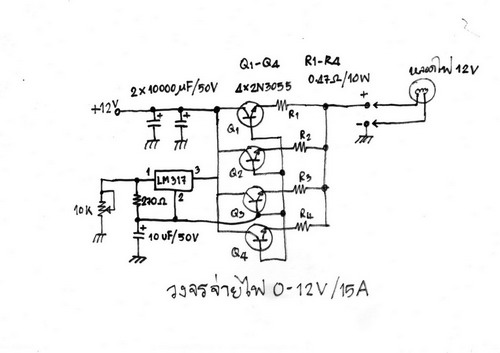 Q1-Q4 R1-R4
2x10000µF/50V 4x2N3055 0.47Ω/10W หลอดไฟ 12V
+12V + + +
R1
Q1 -
R2
1 LM317 3 Q2
270Ω 2 R3
10K Q3
+ R4
10uF/50V Q4
วงจรจ่ายไฟ 0-12V/15A